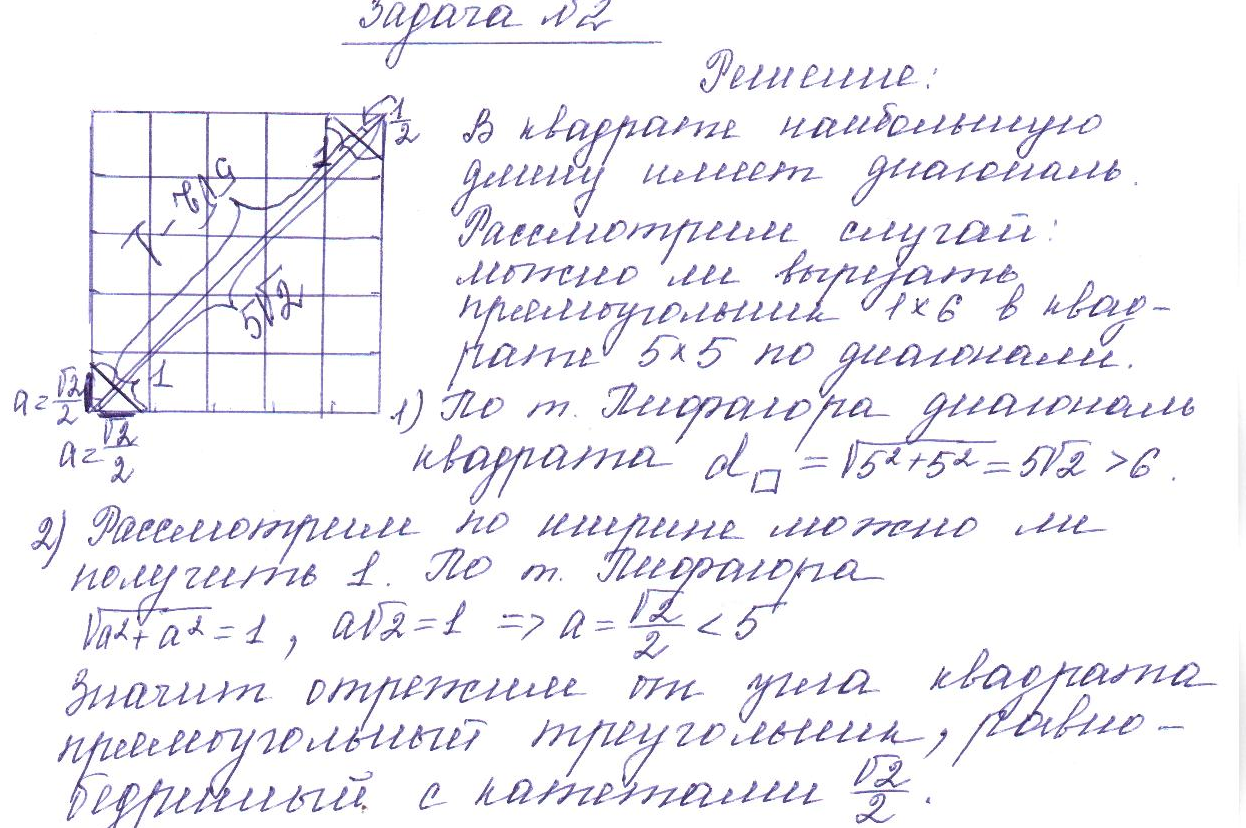 Задача №2
Решение:
В квадрате наибольшую
длину имеет диагональ.
Рассмотрим случай:
можно ли вырезать
прямоугольник 1×6 в квад-
рате 5×5 по диагонали.
1) По т. Пифагора диагональ
квадрата d□ = √5²+5² = 5√2 > 6.
2) Рассмотрим по ширине можно ли
получить 1. По т. Пифагора
√a²+a² = 1, a√2 = 1 => a = √2/2 < 5
Значит отрежим от угла квадрата
прямоугольный треугольник, равно-
бедринный с катетами √2/2.
1/2
1
5√2
1
a = √2/2
a = √2/2